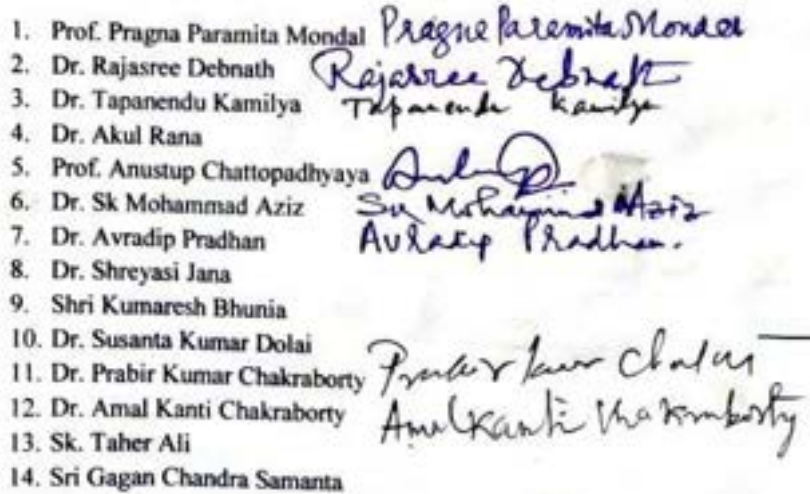 1. Prof. Pragna Paramita Mondal Pragna Paramita Mondal
2. Dr. Rajasree Debnath Rajasree Debnath
3. Dr. Tapanendu Kamilya Tapanendu Kamilya
4. Dr. Akul Rana
5. Prof. Anustup Chattopadhyaya
6. Dr. Sk Mohammad Aziz Sk Mohammad Aziz
7. Dr. Avradip Pradhan Avradip Pradhan.
8. Dr. Shreyasi Jana
9. Shri Kumaresh Bhunia
10. Dr. Susanta Kumar Dolai
11. Dr. Prabir Kumar Chakraborty Prabir
12. Dr. Amal Kanti Chakraborty Amal Kanti Chakraborty
13. Sk. Taher Ali
14. Sri Gagan Chandra Samanta